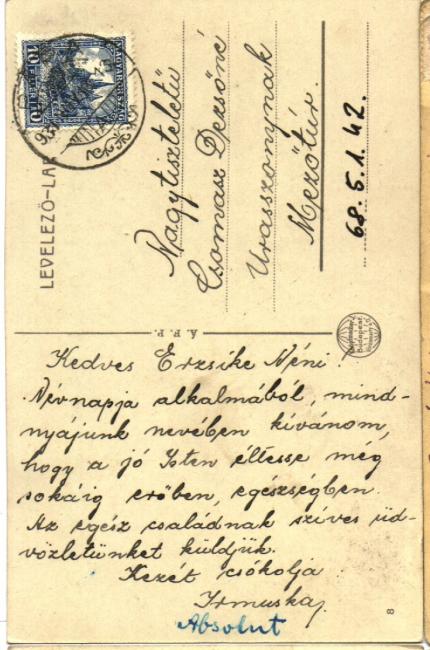 LEVELEZŐ-LAP
MAGYARORSZÁG
10 FILLÉR 10
Nagytiszteletü
Csomasz Dezsőné
Urasszonynak
Mezőtúr.
68.5.1.42.
Á.F.P.
Budapest
Kedves Erzsike Néni!
Névnapja alkalmából, mind-
nyájunk nevében kívánom,
hogy a jó Isten éltesse még
sokáig erőben, egészségben.
Az egész családnak szíves üd-
vözletünket küldjük.
Kezét csókolja
Irmuska
Absolut
8